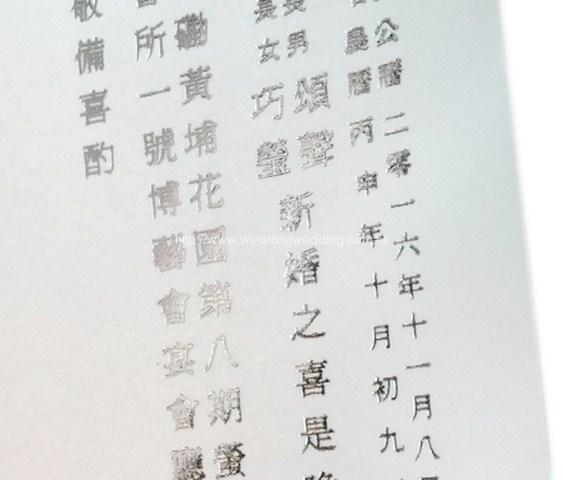 公曆二零一六年十一月八
農曆丙申年十月初九
長男頌聲
長女巧瑩
新婚之喜是晚
磡黃埔花園第八期
會所一號博藝會宴會廳
敬備喜酌
http://www.weddingwedding.com.hk